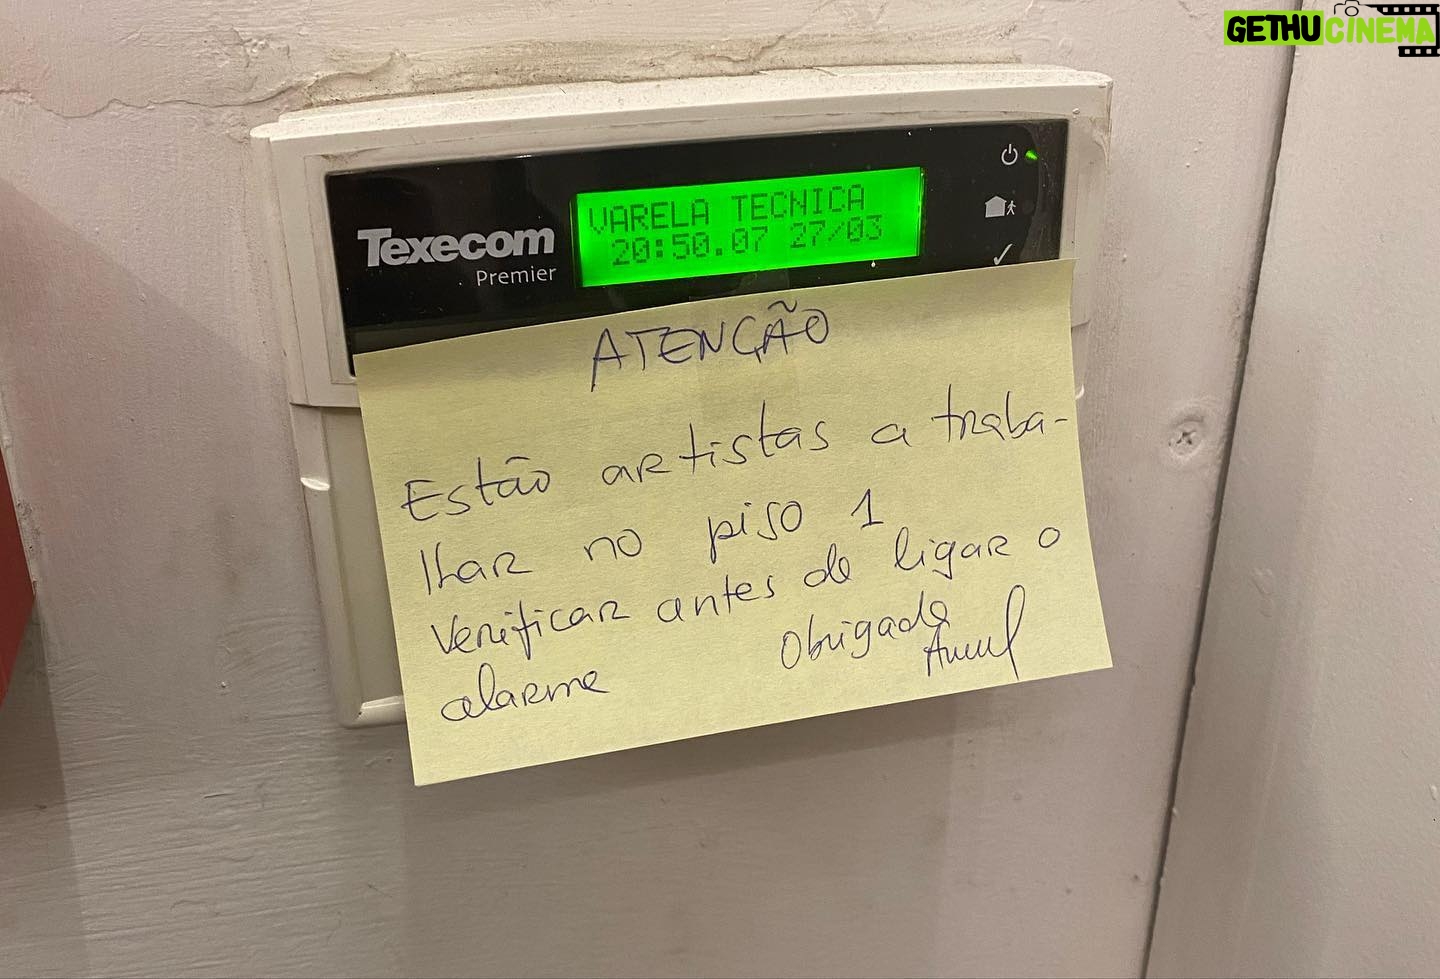 GETHUCINEMA
Texecom
Premier
VARELA TECNICA
20:50.07 27/03
ATENÇÃO
Estão artistas a traba-
lhar no piso 1
Verificar antes de ligar o
alarme
Obrigado